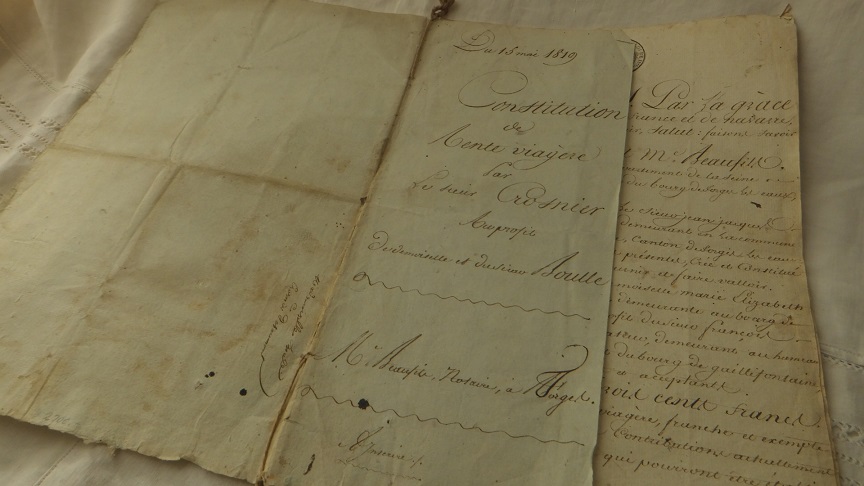 Du 15 mai 1819
Constitution
de
Rente viagere
Par
Le sieur Crosnier
Au profit
de demoiselle et du sieur Boulle
Me Beaufils, Notaire, à Forges.
Par la grâce
france et de navarre,
Salut: faisons savoir
Me Beaufils.
de la Seine
du bourg de forges les eaux
Sieur jean jacques
demeurant en la commune
canton de forges les eaux
présentes, Créé et Constitué
et faire valloir.
moiselle marie Elizabeth
demeurante au bourg de
du Sieur françois
demeurant au hameau
du bourg de gaillefontaine
acceptants.
trois cents francs
viagère, franche et exempte
Contributions actuellement
qui pourront être